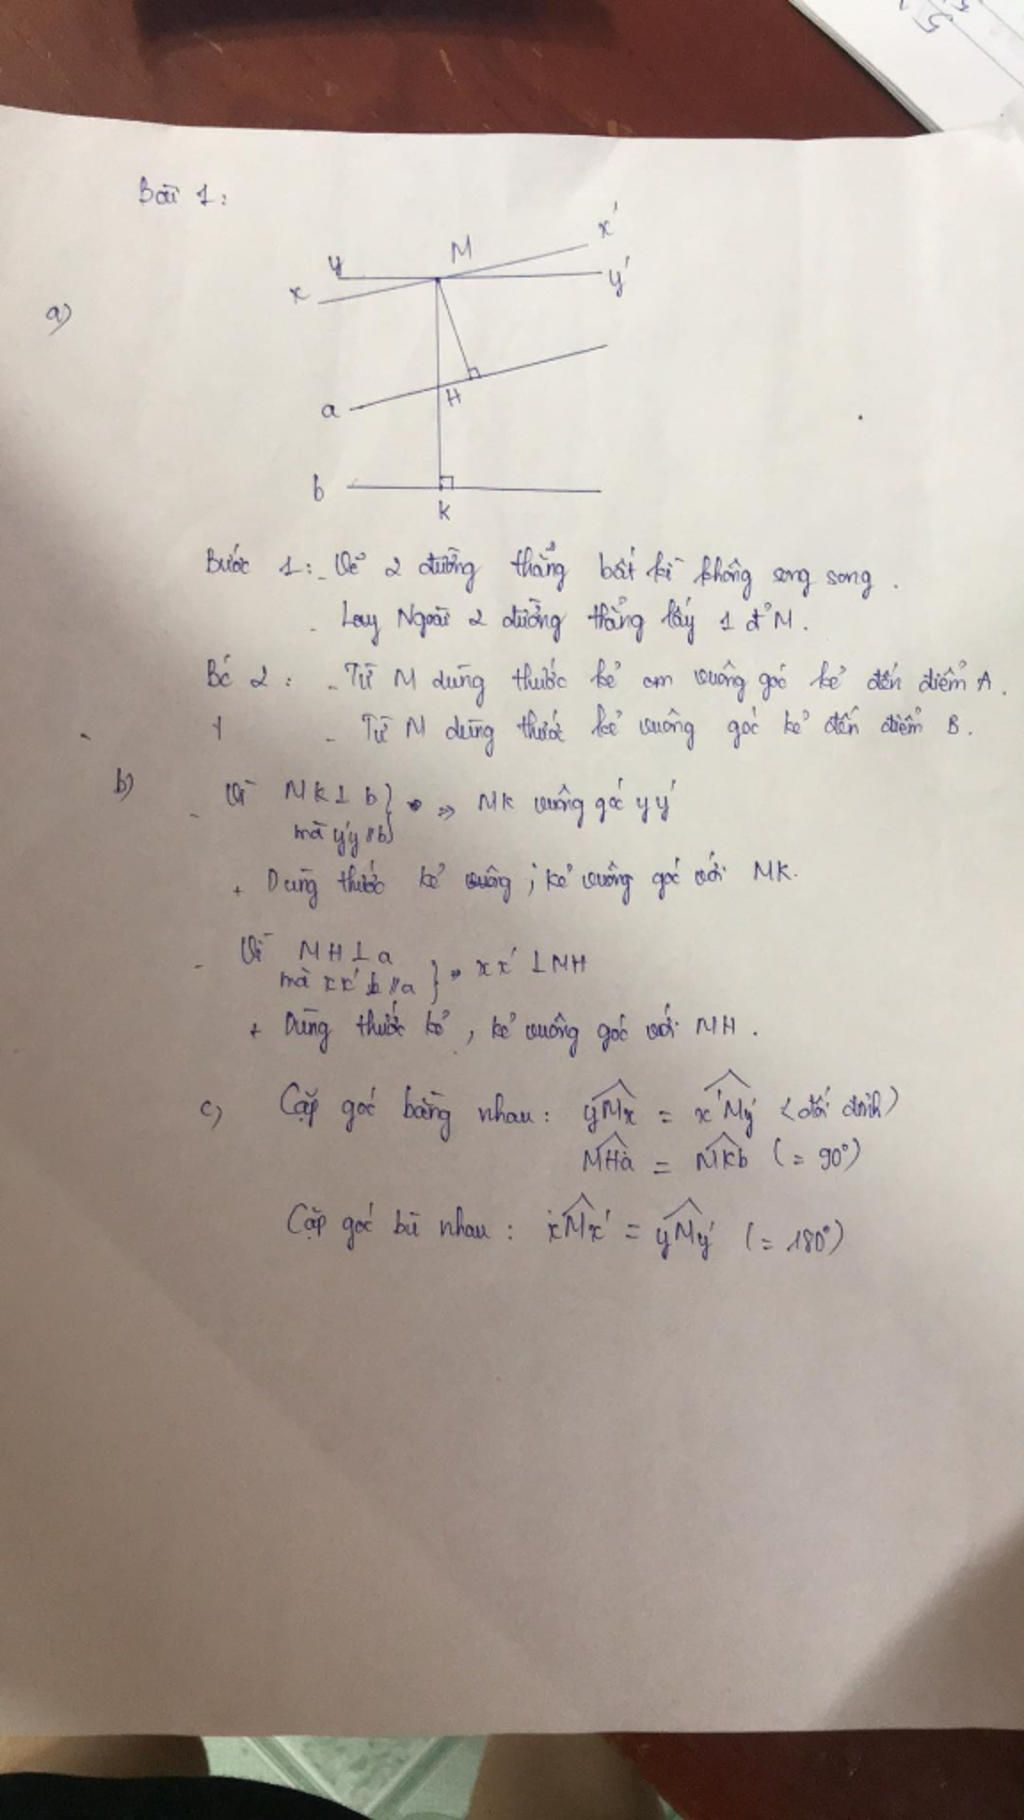 Bài 1:
a)
x'
M
y
y'
x
a
H
b
K
Bước 1: - Vẽ 2 đường thẳng bất kì không song song.
- Lấy Ngoài 2 đường thẳng lấy 1 đ' M.
Bc 2: - Từ M dùng thước kẻ vuông góc kẻ đến điểm A.
- Từ M dùng thước kẻ vuông góc kẻ đến điểm B.
b)
- Vì MK ⊥ b } => MK vuông góc yy'
mà y'y // b
+ Dùng thước kẻ vuông, kẻ vuông góc với MK.
- Vì MH ⊥ a
mà xx' // a } => xx' ⊥ MH
+ Dùng thước kẻ, kẻ vuông góc với MH.
c) Cặp góc bằng nhau: yMx = x'My' (đối đỉnh)
MHa = MKb (= 90°)
Cặp góc bù nhau: xMx' = yMy' (= 180°)